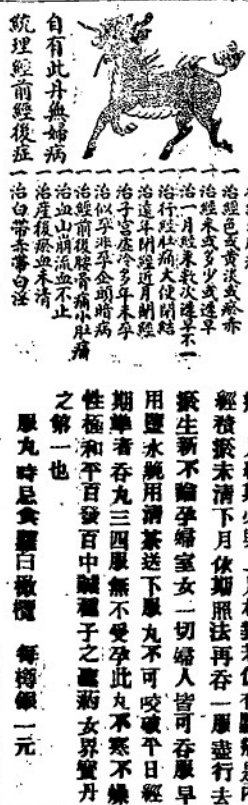 自有此丹無婦病
統理經前經後症
一治經色或黃淡或瘀赤
一治經來或多少或遲早
一治一月經來數次遲早不一
一治行經肚痛大便閉結
一治遠年閉經近月閉經
一治子宮虛冷多年未孕
一治似孕非孕企頭暗病
一治經前後腰骨痛小肚痛
一治血山崩流血不止
一治產後瘀血未清
一治白帶赤帶白淫
輕積瘀未清下月依期照法再吞一服盡行去
瘀生新不論孕婦室女一切婦人皆可吞服早
用鹽水晚用清茶送下服丸不可咬破平日經
期準者吞丸三四服無不受孕此丸不寒不燥
性極和平百發百中誠種子之靈葯女界寶丹
之第一也
服丸時忌食蘿白橄欖 每樽銀一元